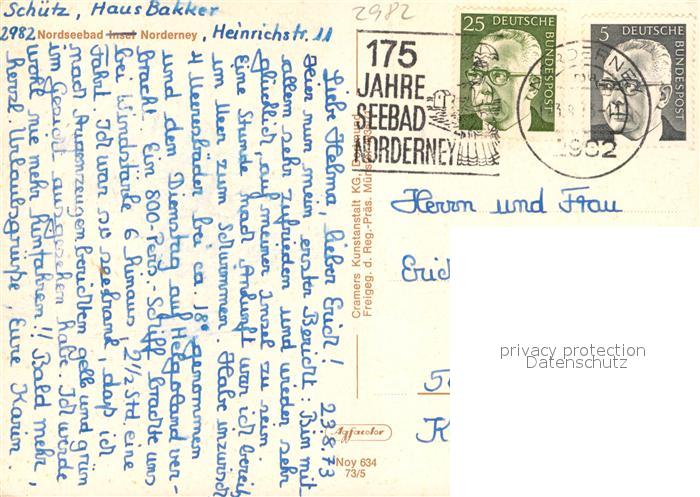 Schütz, Haus Bakker
2982 Nordseebad Insel Norderney, Heinrichstr. 11
2982
175
JAHRE
SEEBAD
NORDERNEY
25
DEUTSCHE
BUNDESPOST
5
DEUTSCHE
BUNDESPOST
2982
23.8.73
Liebe Helma, lieber Erich!
Hier nun mein erster Bericht: Bin mit
allem sehr zufrieden und wieder sehr
glücklich, auf meiner Insel zu sein.
Eine Stunde nach Ankunft war ich bereits
im Meer zum Schwimmen. Habe inzwischen
4 Meeresbäder bei ca. 18° genommen
und den Dienstag auf Helgoland ver-
bracht. Ein 800-Pers. Schiff brachte uns
bei Windstärke 6 hinaus 2 1/2 Std. eine
Fahrt. Ich war so seekrank, daß ich
nach Augenzeugenberichten gelb und grün
im Gesicht ausgesehen habe. Ich werde
wohl nie mehr hinfahren!! Bald mehr,
Herzl. Urlaubsgrüße, Eure Karin.
Cramers Kunstanstalt KG.
Freigeg. d. Reg.-Präs.
Agfacolor
Noy 634
73/5
Herrn und Frau
Eric
K
privacy protection
Datenschutz